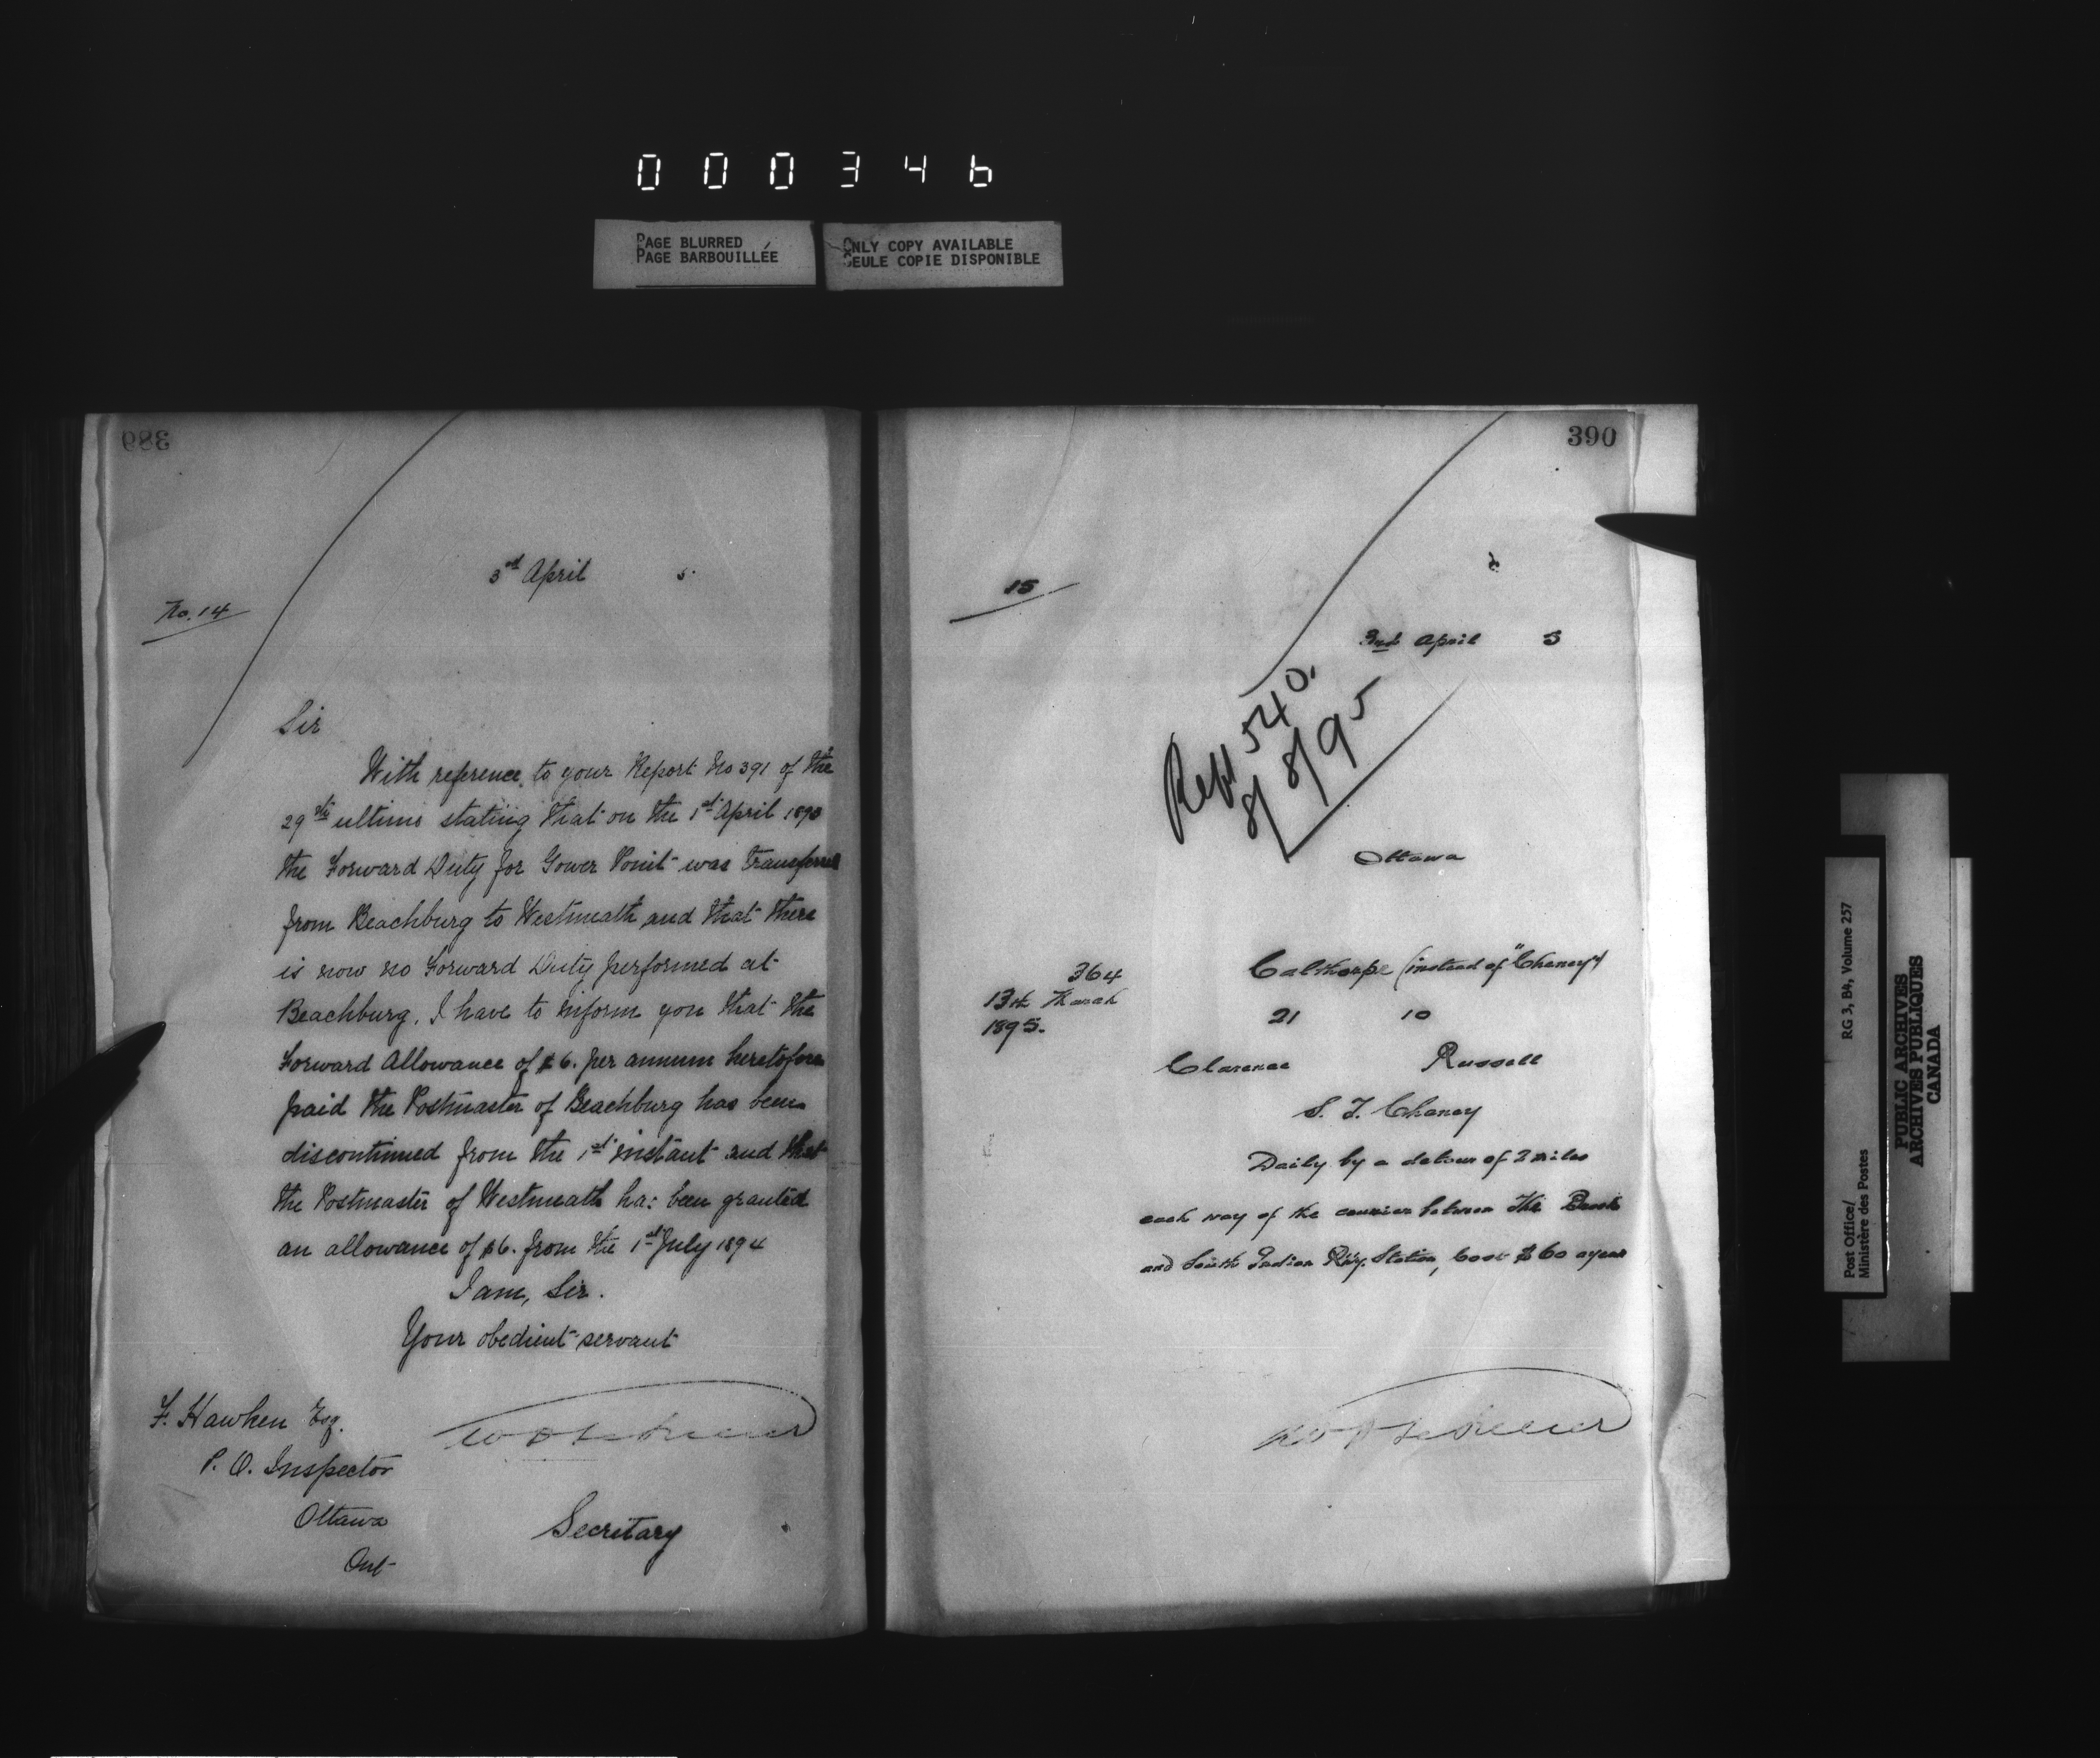 000346
PAGE BLURRED
PAGE BARBOUILLÉE
ONLY COPY AVAILABLE
SEULE COPIE DISPONIBLE
389
3rd April 5
No. 14
Sir
With reference to your Report No 391 of the
29th ultimo stating that on the 1st April 1893
the Forward Duty for Gower Point was transferred
from Beachburg to Westmeath and that there
is now no Forward Duty performed at
Beachburg, I have to inform you that the
Forward Allowance of $6. per annum heretofore
paid the Postmaster of Beachburg has been
discontinued from the 1st instant and that
the Postmaster of Westmeath has been granted
an allowance of $6. from the 1st July 1894
I am, Sir.
Your obedient servant
F. Hawken Esq.
P. O. Inspector
Ottawa
Ont
Secretary
390
15
3rd April 5
Rept 540,
8/8/95
Ottawa
364
13th March
1895.
Calthorpe (instead of "Chaney")
21 10
Clarence Russell
S. T. Chaney
Daily by a detour of 2 miles
each way of the courier between The Brook
and South Indian Ry. Station, Cost $60 a year
RG 3, B4, Volume 257
Post Office/
Ministère des Postes
PUBLIC ARCHIVES
ARCHIVES PUBLIQUES
CANADA